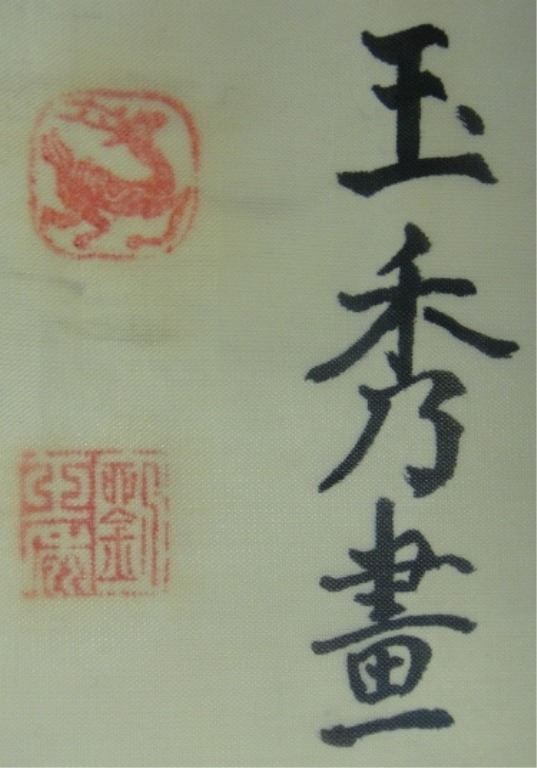 玉秀畫